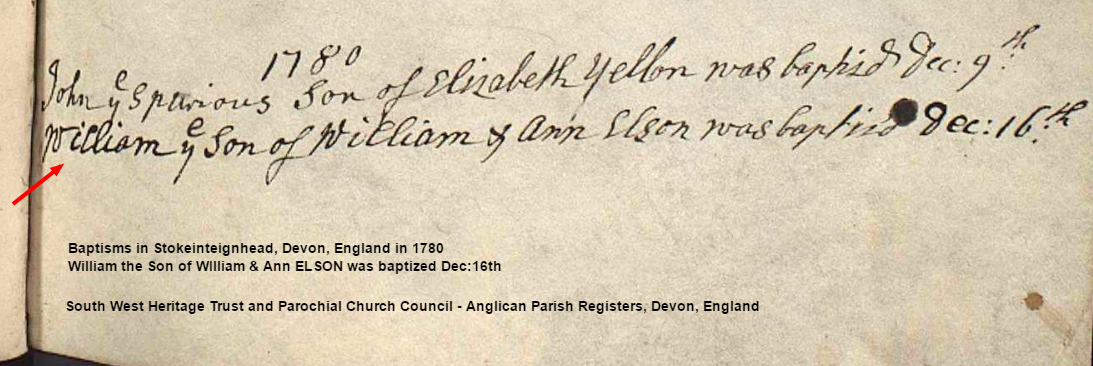 1780
John yᵉ Spurious Son of Elizabeth Yellon was baptizd Dec: 9th
William yᵉ Son of William & Ann Elson was baptizd Dec: 16th
Baptisms in Stokeinteignhead, Devon, England in 1780
William the Son of WIlliam & Ann ELSON was baptized Dec:16th
South West Heritage Trust and Parochial Church Council - Anglican Parish Registers, Devon, England